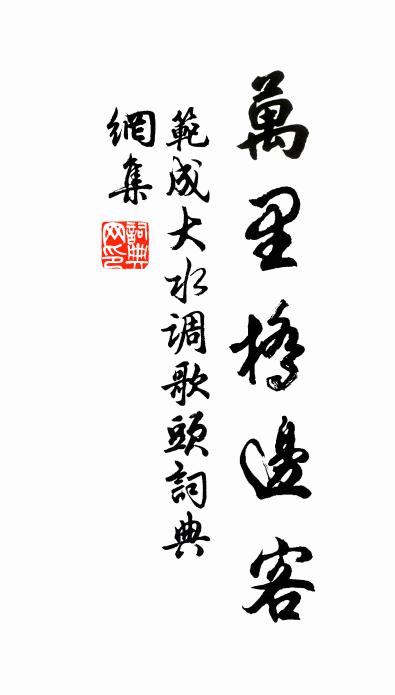 萬里橋邊客
範成大水调歌頭詞典
網集
詞典網印